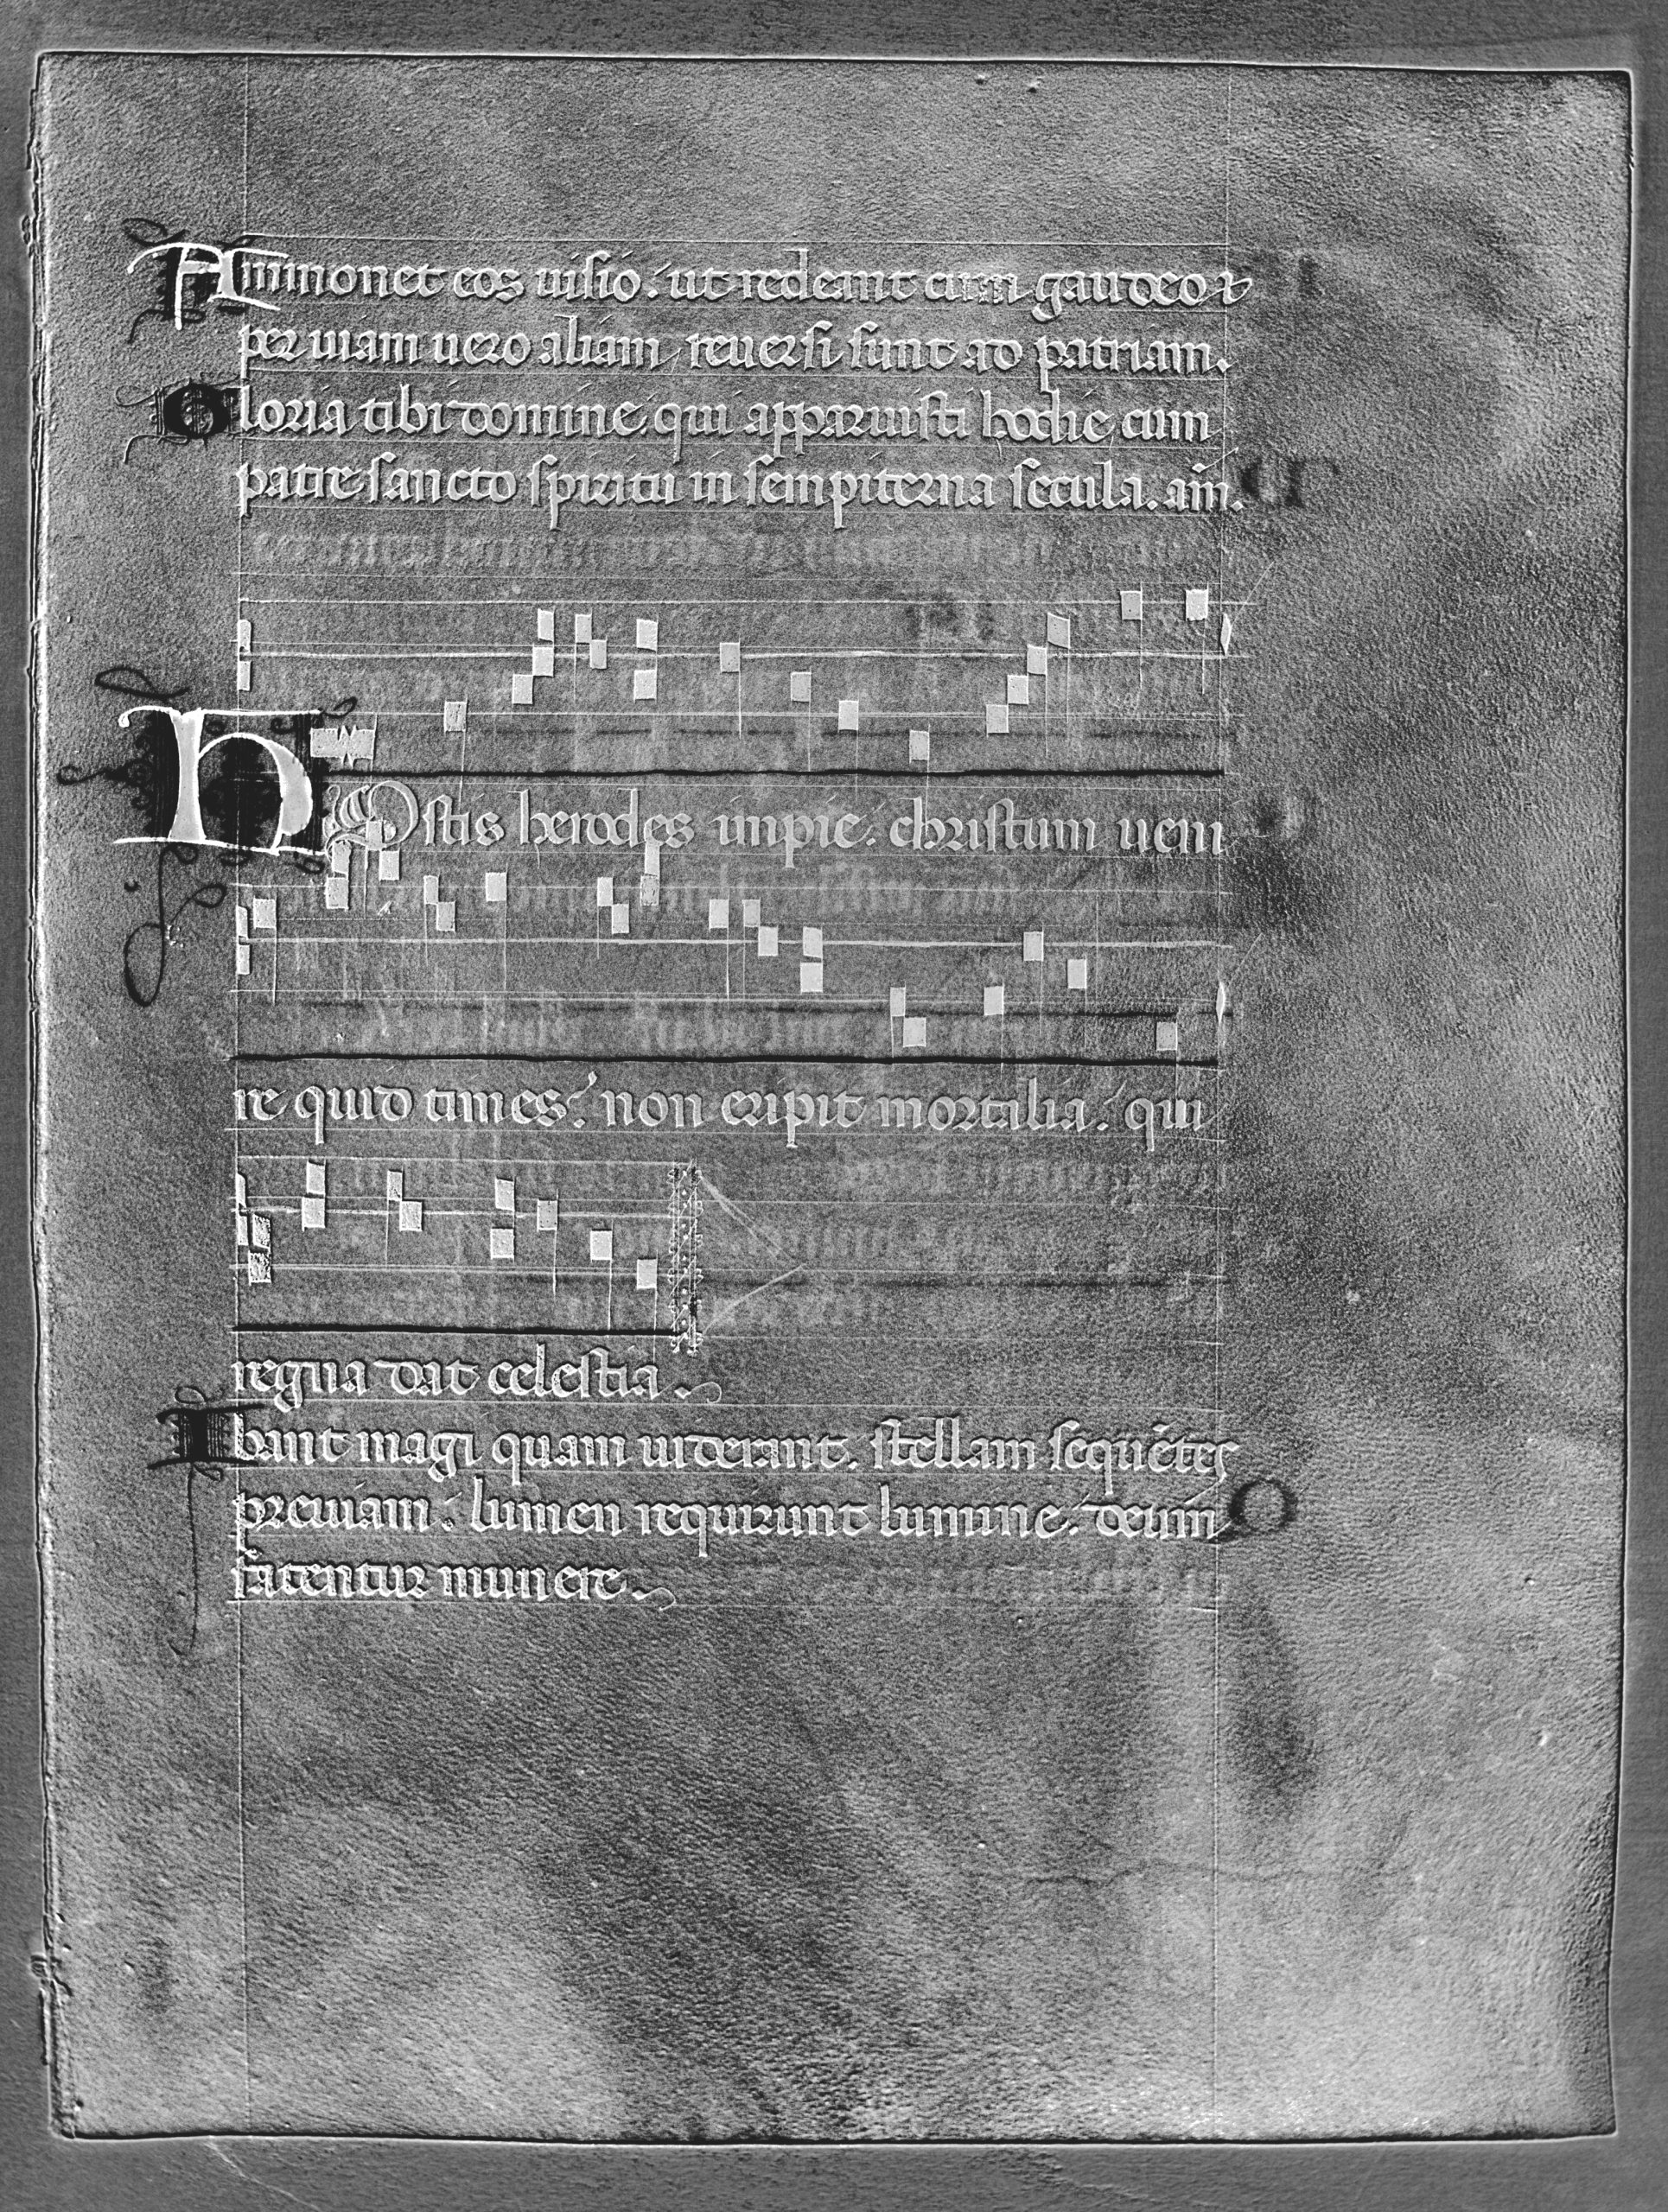 Ammonet eos uisio. ut redeant cum gaudeo &
per uiam uero aliam, reuersi sunt ad patriam.
Gloria tibi domine, qui apparuisti hodie, cum
patre sancto spiritu in sempiterna secula. am̄.
HOstis herodes impie. christum ueni
re quid times? non eripit mortalia. qui
regna dat celestia.
Ibant magi quam uiderant. stellam sequētes
preuiam. lumen requirunt lumine. deum
fatentur munere.